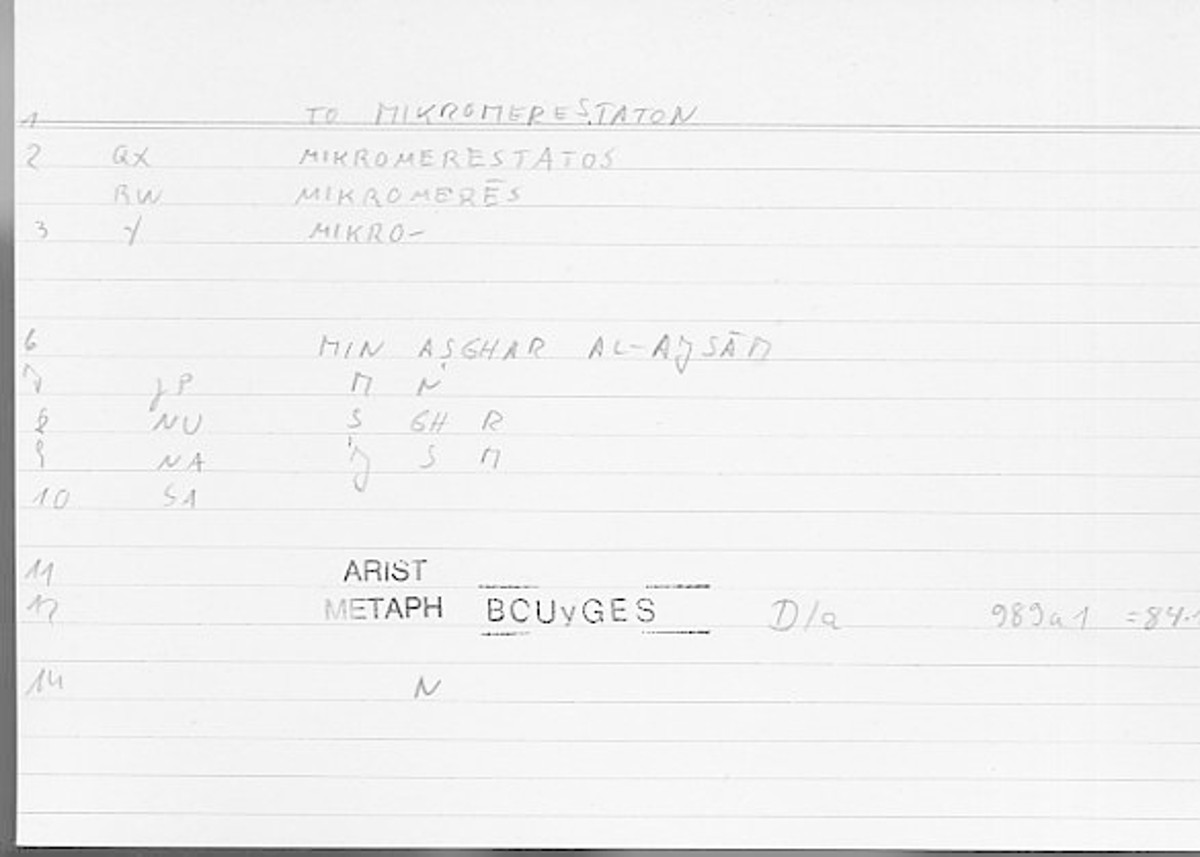 1 TO MIKROMERESTATON
2 QX MIKROMERESTATOS
RW MIKROMERĒS
3 Y MIKRO-
6 MIN AṢGHAR AL-AJSĀM
7 JP M N
8 NU Ṣ GH R
9 NA J S M
10 S1
11 ARIST
12 METAPH BOUYGES D/a 989a1 =84.1
14 N